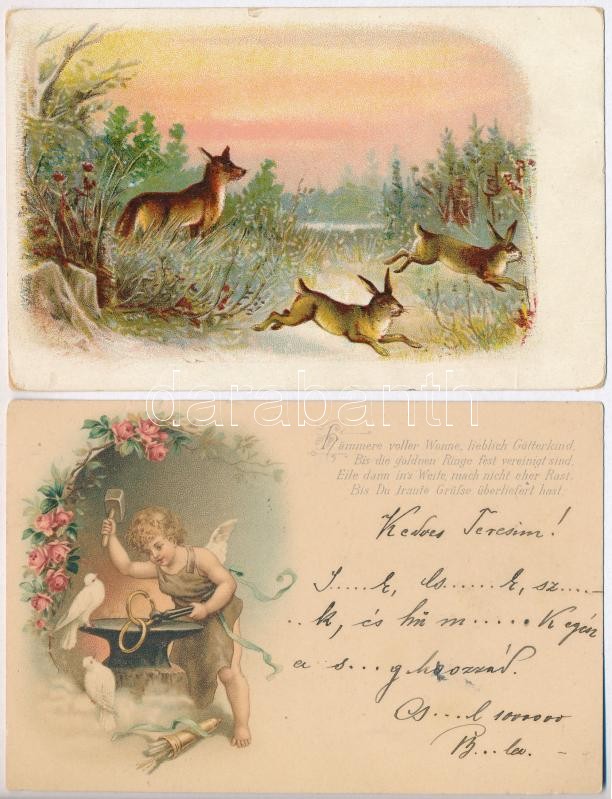 darabanth
Hämmere voller Wonne, lieblich Götterkind,
Bis die goldnen Ringe fest vereinigt sind.
Eile dann in's Weite, mach nicht eher Rast,
Bis Du traute Grüße überliefert hast.
Kedves Teresim!
I....k, Cs.....k, sz....-
...k, és hű m.... K egész
a s...g hozzád.
Cs....l 1000000
B...la. -